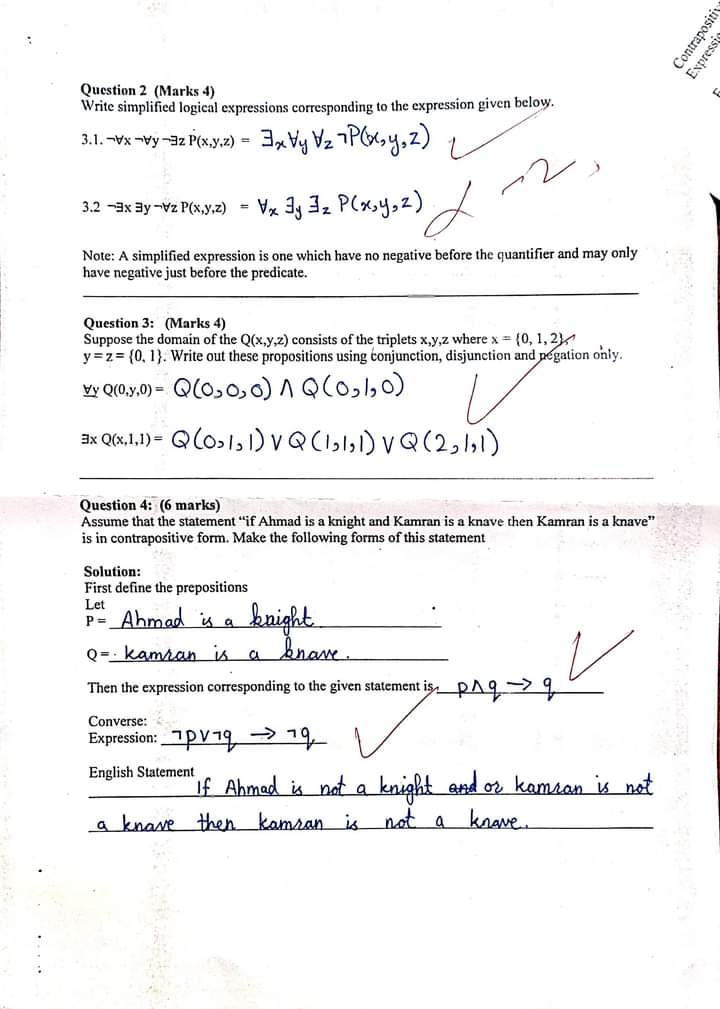 Contrapositiv
Expressio
Question 2 (Marks 4)
Write simplified logical expressions corresponding to the expression given below.
3.1. ¬∀x ¬∀y ¬∃z P(x,y,z) = ∃x ∀y ∀z ¬P(x,y,z)
3.2 ¬∃x ∃y ¬∀z P(x,y,z) = ∀x ∃y ∃z P(x,y,z)
Note: A simplified expression is one which have no negative before the quantifier and may only
have negative just before the predicate.
Question 3: (Marks 4)
Suppose the domain of the Q(x,y,z) consists of the triplets x,y,z where x = {0, 1, 2},
y = z = {0, 1}. Write out these propositions using conjunction, disjunction and negation only.
∀y Q(0,y,0) = Q(0,0,0) ∧ Q(0,1,0)
∃x Q(x,1,1) = Q(0,1,1) ∨ Q(1,1,1) ∨ Q(2,1,1)
Question 4: (6 marks)
Assume that the statement “if Ahmad is a knight and Kamran is a knave then Kamran is a knave”
is in contrapositive form. Make the following forms of this statement
Solution:
First define the prepositions
Let
P = Ahmad is a knight
Q = kamran is a knave.
Then the expression corresponding to the given statement is p∧q → q
Converse:
Expression: ¬p∨¬q → ¬q
English Statement
If Ahmad is not a knight and or kamran is not
a knave then kamran is not a knave.